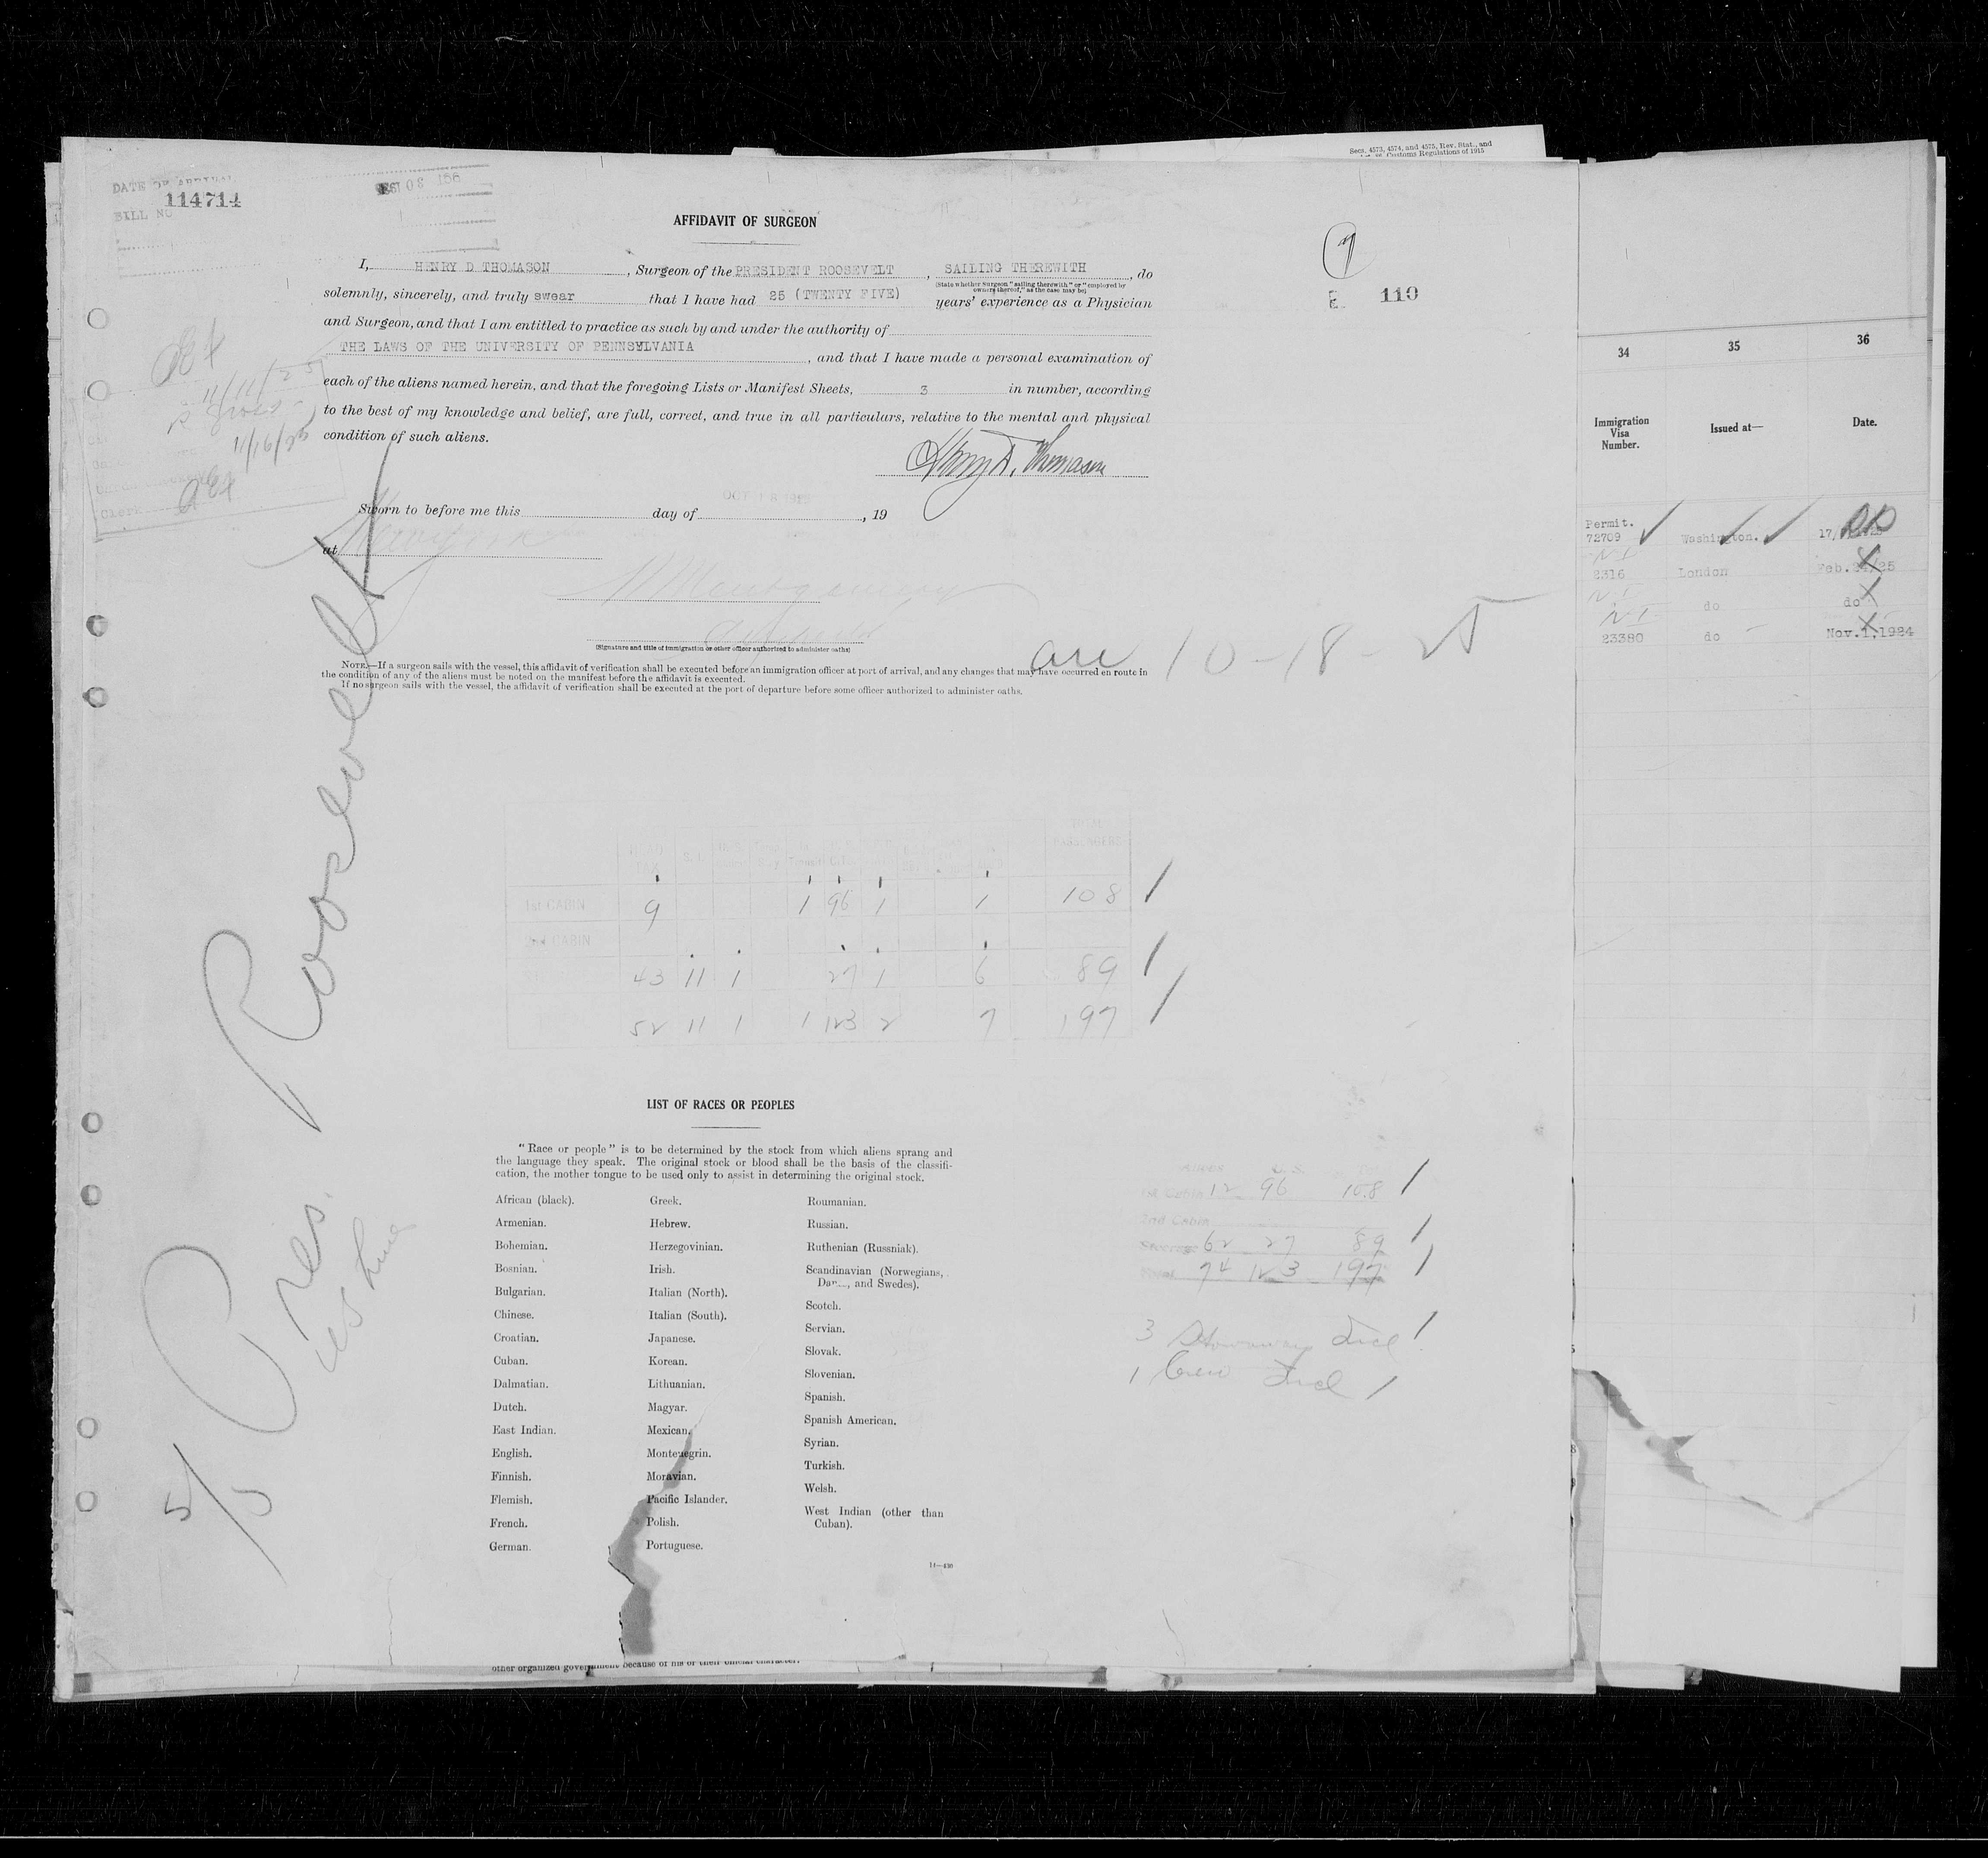 Secs. 4573, 4574, and 4575, Rev. Stat., and
Customs Regulations of 1915
DATE OF ARRIVAL
114714
BILL NO
AFFIDAVIT OF SURGEON
I, HENRY D THOMASON, Surgeon of the PRESIDENT ROOSEVELT, SAILING THEREWITH, do
(State whether Surgeon "sailing therewith" or "employed by
owners thereof," as the case may be)
solemnly, sincerely, and truly swear that I have had 25 (TWENTY FIVE) years' experience as a Physician
and Surgeon, and that I am entitled to practice as such by and under the authority of
THE LAWS OF THE UNIVERSITY OF PENNSYLVANIA, and that I have made a personal examination of
each of the aliens named herein, and that the foregoing Lists or Manifest Sheets, 3 in number, according
to the best of my knowledge and belief, are full, correct, and true in all particulars, relative to the mental and physical
condition of such aliens.
Henry D. Thomason
OCT 18 1925
Sworn to before me this day of , 19
at New York
(Signature and title of immigration or other officer authorized to administer oaths)
NOTE.—If a surgeon sails with the vessel, this affidavit of verification shall be executed before an immigration officer at port of arrival, and any changes that may have occurred en route in
the condition of any of the aliens must be noted on the manifest before the affidavit is executed.
If no surgeon sails with the vessel, the affidavit of verification shall be executed at the port of departure before some officer authorized to administer oaths.
E 110
11/11/25
11/16/25
Clerk
arr 10-18-25
Pres. Roosevelt
US Lines
5/5
HEAD TAX
TOTAL PASSENGERS
1st CABIN 9 1 96 1 1 108
2nd CABIN
43 11 1 27 1 6 89
52 11 1 1 123 2 7 197
LIST OF RACES OR PEOPLES
"Race or people" is to be determined by the stock from which aliens sprang and
the language they speak. The original stock or blood shall be the basis of the classifi-
cation, the mother tongue to be used only to assist in determining the original stock.
African (black).
Armenian.
Bohemian.
Bosnian.
Bulgarian.
Chinese.
Croatian.
Cuban.
Dalmatian.
Dutch.
East Indian.
English.
Finnish.
Flemish.
French.
German.
Greek.
Hebrew.
Herzegovinian.
Irish.
Italian (North).
Italian (South).
Japanese.
Korean.
Lithuanian.
Magyar.
Mexican.
Montenegrin.
Moravian.
Pacific Islander.
Polish.
Portuguese.
Roumanian.
Russian.
Ruthenian (Russniak).
Scandinavian (Norwegians,
and Swedes).
Scotch.
Servian.
Slovak.
Slovenian.
Spanish.
Spanish American.
Syrian.
Turkish.
Welsh.
West Indian (other than
Cuban).
14—430
Aliens U.S.
1st Cabin 12 96 108
2nd Cabin
Steerage 62 27 89
Total 74 123 197
3 Stowaways Incl
1 Crew Incl
other organized government because of his or their official character.
34
35
36
Immigration
Visa
Number.
Issued at—
Date.
Permit.
72709 Washington.
2316 London Feb.24/25
do do
23380 do Nov.1,1924